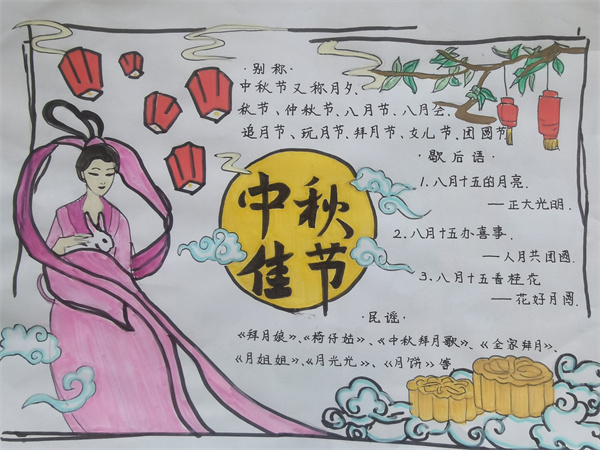 ·别称·
中秋节又称月夕、
秋节、仲秋节、八月节、八月会、
追月节、玩月节、拜月节、女儿节、团圆节
中秋
佳节
·歇后语·
1.八月十五的月亮
—正大光明.
2.八月十五办喜事.
—人月共团圆.
3.八月十五看桂花
—花好月圆.
·民谣·
《拜月娘》、《椅仔姑》、《中秋拜月歌》、《全家拜月》、
《月姐姐》、《月光光》、《月饼》等